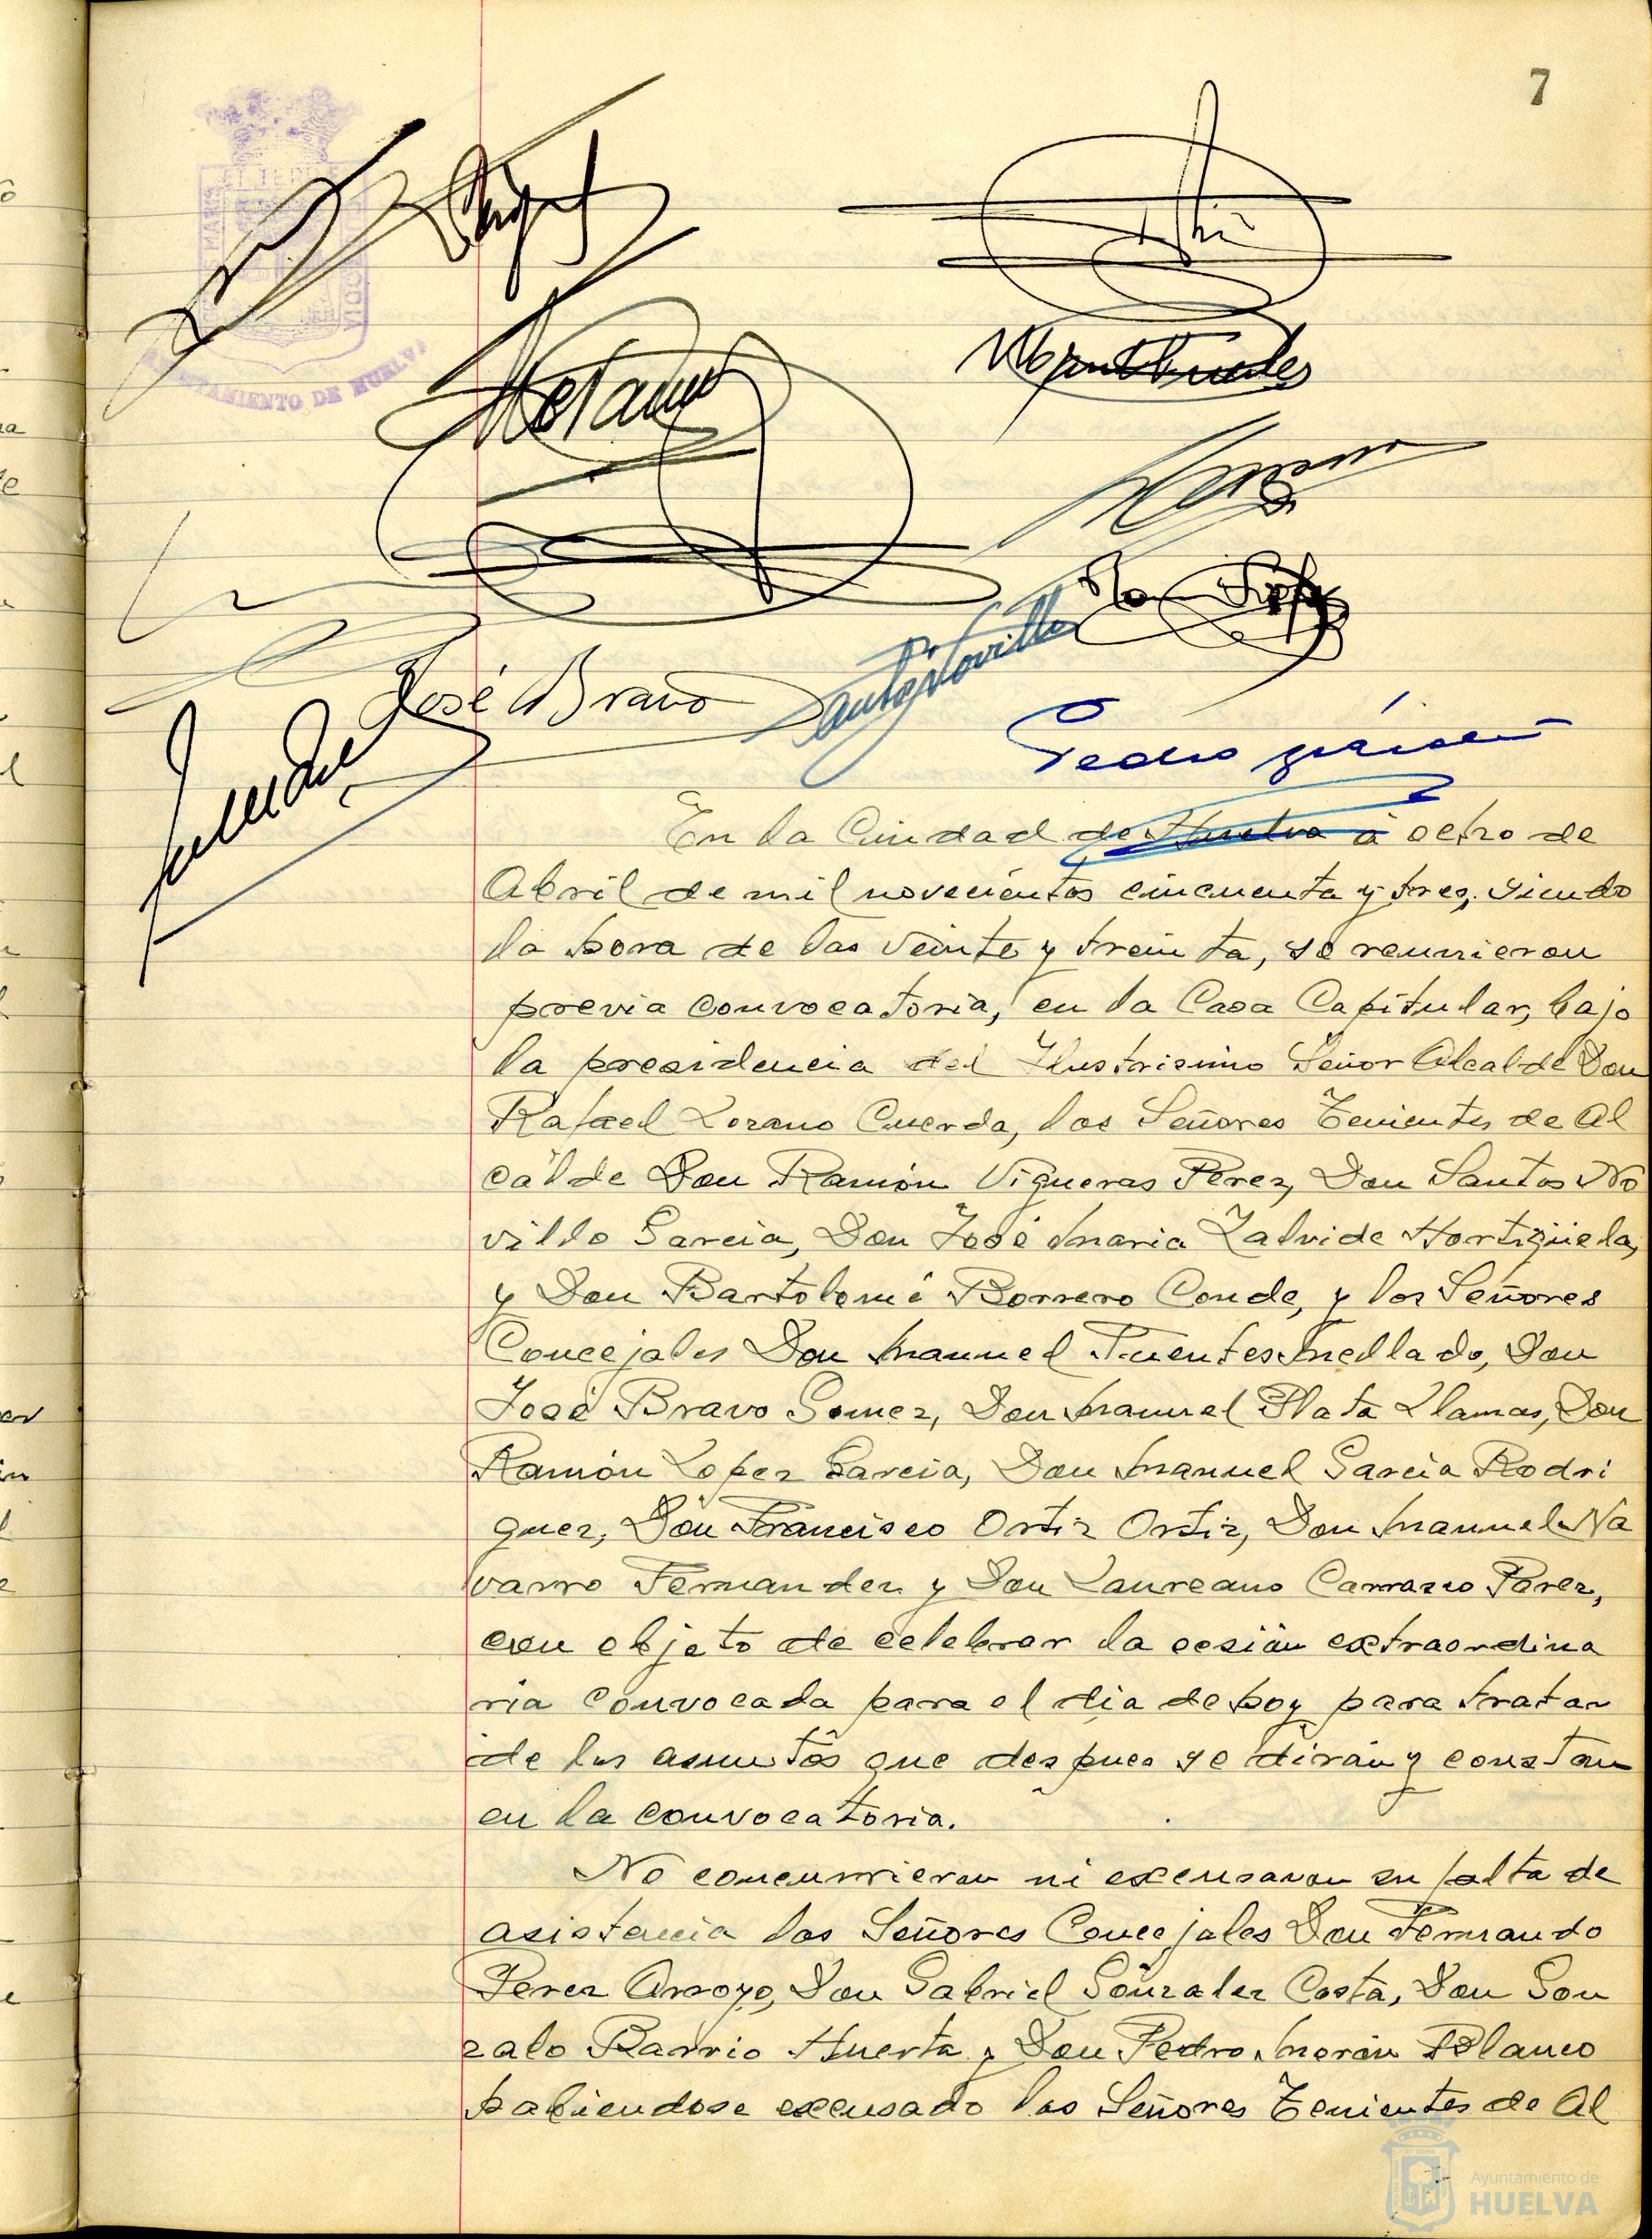 7
AYUNTAMIENTO DE HUELVA
José Bravo
Santos Novillo
Pedro
En la Ciudad de Huelva á ocho de
Abril de mil novecientos cincuenta y tres, siendo
la hora de las veinte y treinta, se reunieron
previa convocatoria, en la Casa Capitular, bajo
la presidencia del Ilustrisimo Señor Alcalde Don
Rafael Lozano Cuerda, los Señores Tenientes de Al
calde Don Ramón Vigueras Perez, Don Santos No
villo Garcia, Don José Maria Zalvide Hortigüela,
y Don Bartolomé Borrero Conde, y los Señores
Concejales Don Manuel Fuentes Mellado, Don
José Bravo Gomez, Don Manuel Plata Llamas, Don
Ramón Lopez Garcia, Don Manuel Garcia Rodri
guez, Don Francisco Ortiz Ortiz, Don Manuel Na
varro Fernandez y Don Laureano Carrasco Perez,
con objeto de celebrar la sesión extraordina
ria convocada para el dia de hoy para tratar
de los asuntos que despues se dirán y constan
en la convocatoria.
No concurrieron ni excusaron su falta de
asistencia los Señores Concejales Don Fernando
Perez Arroyo, Don Gabriel Gonzalez Costa, Don Gon
zalo Barrio Huerta y Don Pedro Morón Blanco
habiendose excusado los Señores Tenientes de Al
Ayuntamiento de
HUELVA